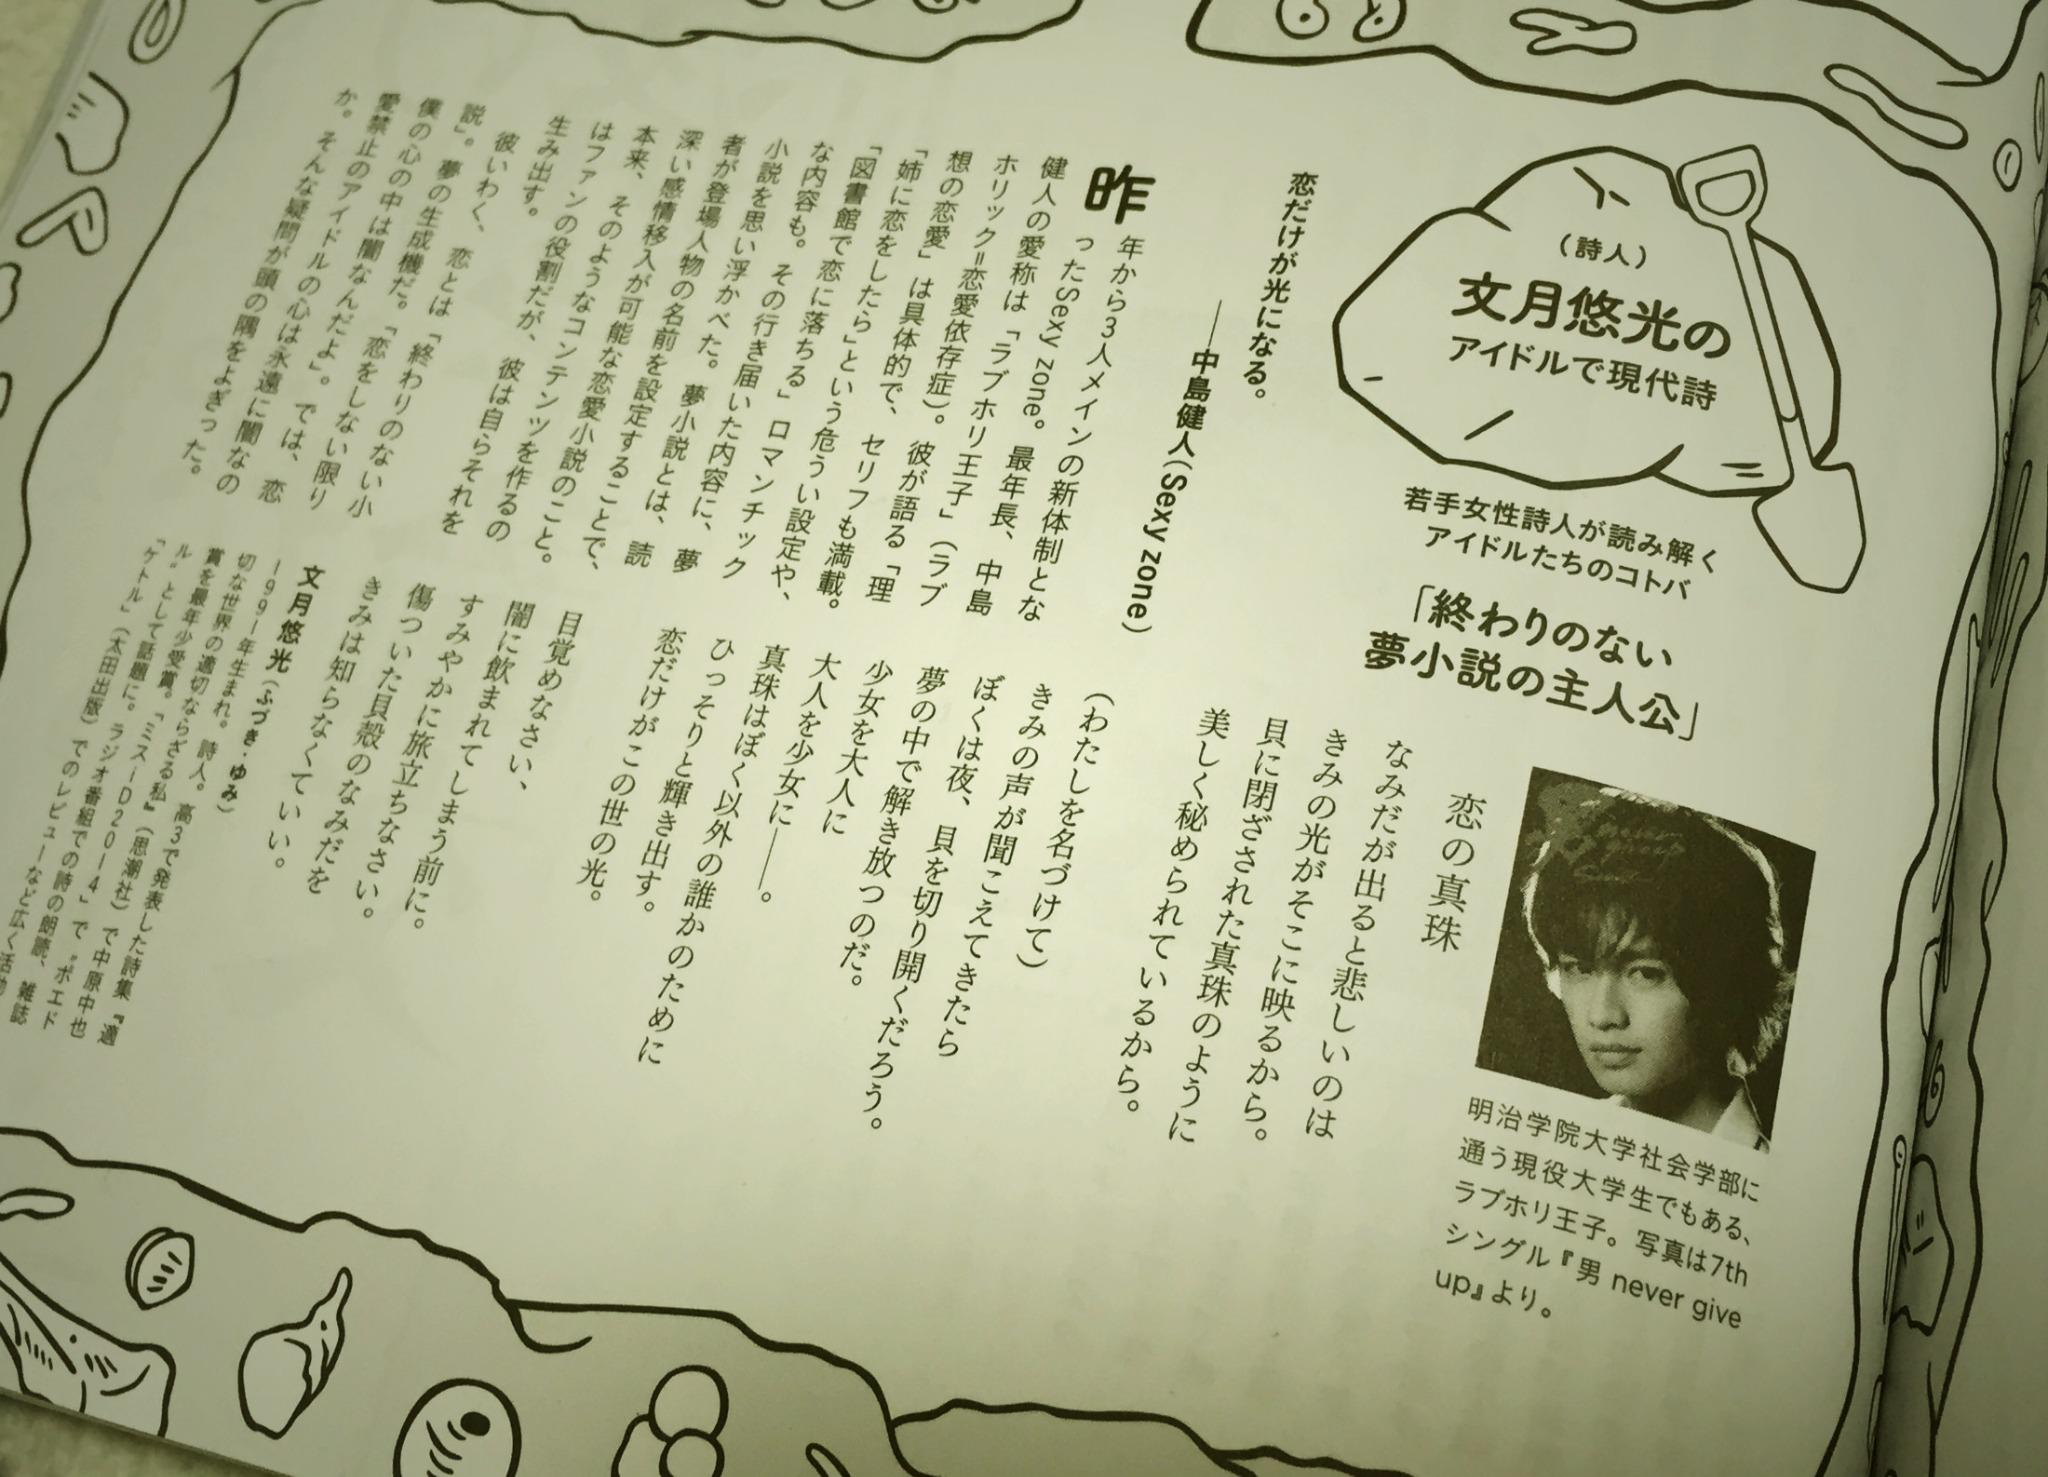 （詩人）
文月悠光の
アイドルで現代詩
若手女性詩人が読み解く
アイドルたちのコトバ
「終わりのない
夢小説の主人公」
明治学院大学社会学部に
通う現役大学生でもある、
ラブホリ王子。写真は7th
シングル『男 never give
up』より。
恋だけが光になる。
――中島健人（Sexy zone）
昨年から3人メインの新体制とな
ったSexy zone。最年長、中島
健人の愛称は「ラブホリ王子」（ラブ
ホリック＝恋愛依存症）。彼が語る「理
想の恋愛」は具体的で、セリフも満載。
「姉に恋をしたら」という危うい設定や、
「図書館で恋に落ちる」ロマンチック
な内容も。その行き届いた内容に、夢
小説を思い浮かべた。夢小説とは、読
者が登場人物の名前を設定することで、
深い感情移入が可能な恋愛小説のこと。
本来、そのようなコンテンツを作るの
はファンの役割だが、彼は自らそれを
生み出す。
彼いわく、恋とは「終わりのない小
説」。夢の生成機だ。「恋をしない限り
僕の心の中は闇なんだよ」。では、恋
愛禁止のアイドルの心は永遠に闇なの
か。そんな疑問が頭の隅をよぎった。
恋の真珠
なみだが出ると悲しいのは
きみの光がそこに映るから。
貝に閉ざされた真珠のように
美しく秘められているから。
（わたしを名づけて）
きみの声が聞こえてきたら
ぼくは夜、貝を切り開くだろう。
夢の中で解き放つのだ。
少女を大人に
大人を少女に――。
真珠はぼく以外の誰かのために
ひっそりと輝き出す。
恋だけがこの世の光。
目覚めなさい、
闇に飲まれてしまう前に。
すみやかに旅立ちなさい。
傷ついた貝殻のなみだを
きみは知らなくていい。
文月悠光（ふづき・ゆみ）
1991年生まれ。詩人。高3で発表した詩集『適
切な世界の適切ならざる私』（思潮社）で中原中也
賞を最年少受賞。「ミスiD2014」で“ポエド
ル”として話題に。ラジオ番組での詩の朗読、雑誌
「ケトル」（太田出版）でのレビューなど広く活動